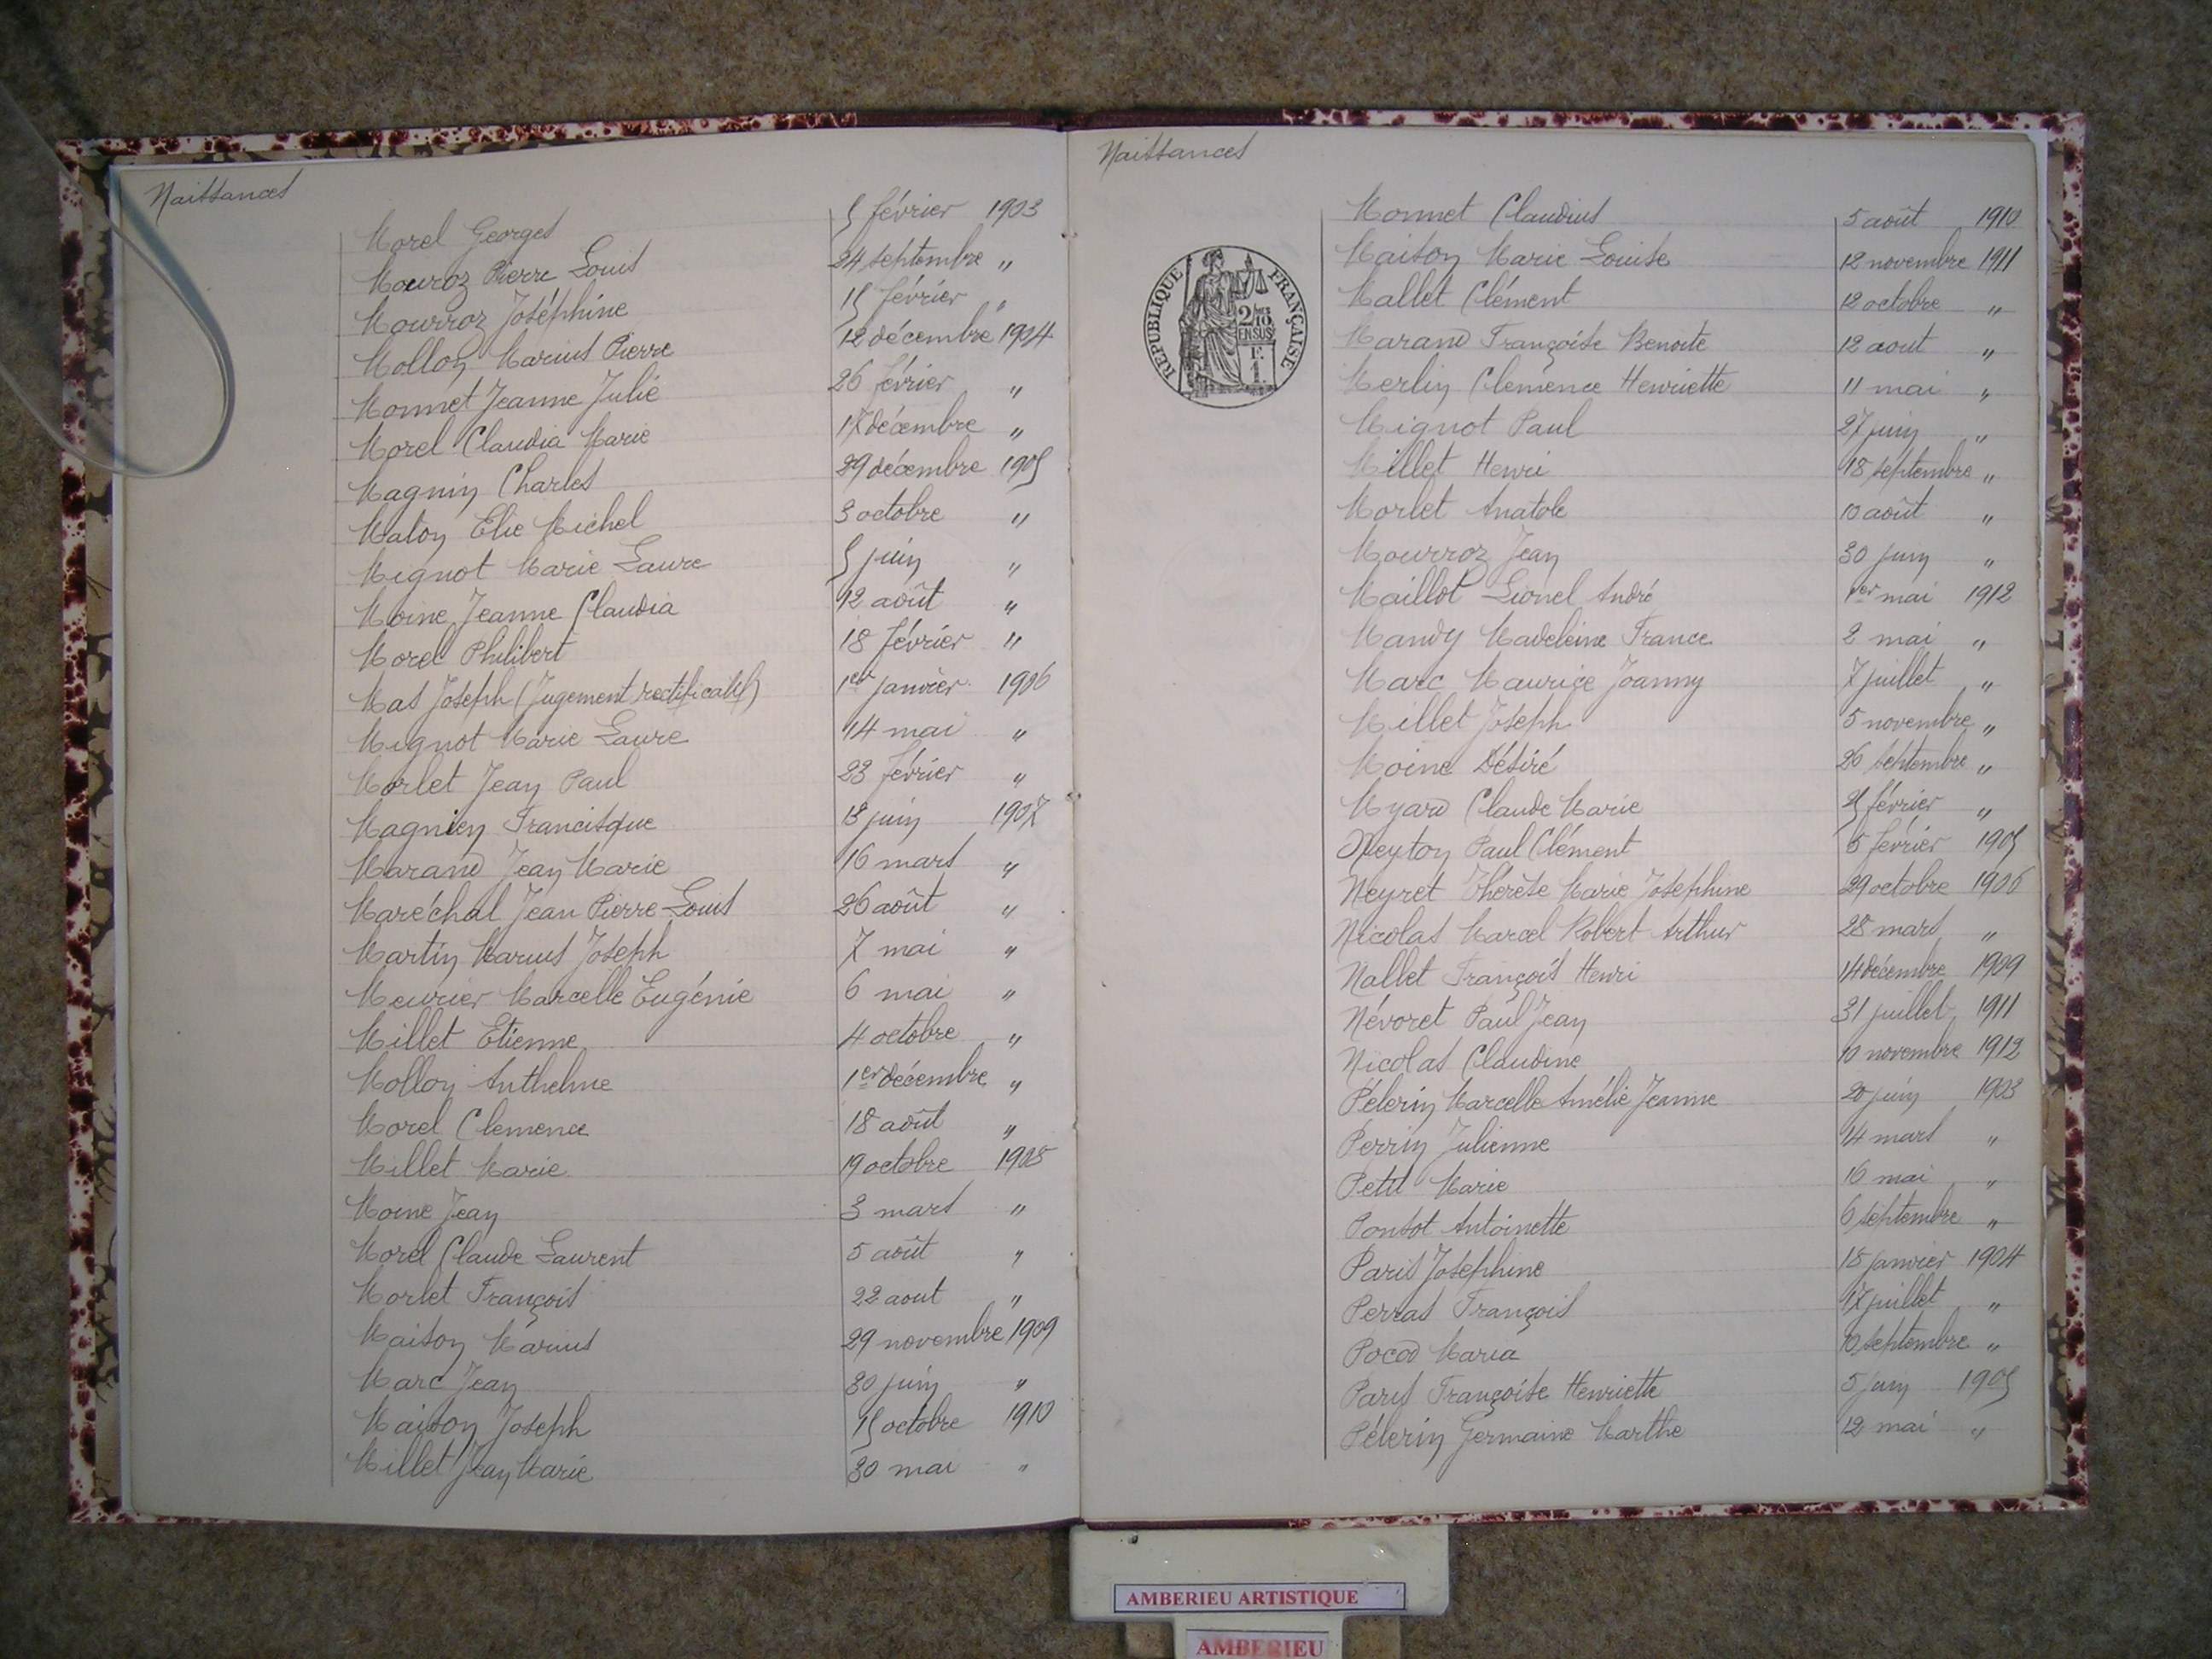 Naissances
Morel Georges 5 février 1903
Mouroz Pierre Louis 24 septembre "
Mourroz Joséphine 15 février "
Mollon Marius Pierre 12 décembre 1904
Monnet Jeanne Julie 26 février "
Morel Claudia Marie 17 décembre "
Magnin Charles 29 décembre 1905
Maton Elie Michel 3 octobre "
Mignot Marie Laure 5 juin "
Moine Jeanne Claudia 12 août "
Morel Philibert 18 février "
Mas Joseph (Jugement rectificatif) 1er janvier 1906
Mignot Marie Laure 14 mai "
Morlet Jean Paul 23 février "
Magnien Francisque 13 juin 1907
Marand Jean Marie 16 mars "
Maréchal Jean Pierre Louis 26 août "
Martin Marius Joseph 7 mai "
Meurier Marcelle Eugénie 6 mai "
Millet Etienne 4 octobre "
Mollon Anthelme 1er décembre "
Morel Clemence 18 août "
Millet Marie 19 octobre 1908
Moine Jean 3 mars "
Morel Claude Laurent 5 août "
Morlet François 22 aout "
Maison Marius 29 novembre 1909
Marc Jean 30 juin "
Maison Joseph 15 octobre 1910
Millet Jean Marie 30 mai "
Naissances
REPUBLIQUE FRANÇAISE
2/10 EN SUS
F. 1.
Monnet Claudius 5 août 1910
Maison Marie Louise 12 novembre 1911
Mallet Clément 12 octobre "
Marand Françoise Benoite 12 aout "
Merlin Clemence Henriette 11 mai "
Mignot Paul 27 juin "
Millet Henri 18 septembre "
Morlet Anatole 10 août "
Mourroz Jean 30 juin "
Maillot Lionel André 1er mai 1912
Mandy Madeleine France 2 mai "
Marc Maurice Joanny 7 juillet "
Millet Joseph 5 novembre "
Moine Désiré 26 septembre "
Myard Claude Marie 25 février "
Neyton Paul Clément 5 février 1905
Neyret Thérèse Marie Josephine 29 octobre 1906
Nicolas Marcel Robert Arthur 28 mars "
Nallet François Henri 14 décembre 1909
Névoret Paul Jean 31 juillet 1911
Nicolas Claudine 10 novembre 1912
Pélerin Marcelle Amélie Jeanne 20 juin 1903
Perrin Julienne 14 mars "
Petit Marie 16 mai "
Ponsot Antoinette 6 septembre "
Paris Josephine 18 janvier 1904
Perras François 17 juillet "
Pocod Maria 10 septembre "
Paris Françoise Henriette 5 juin 1905
Pélerin Germaine Marthe 12 mai "
AMBERIEU ARTISTIQUE
AMBERIEU